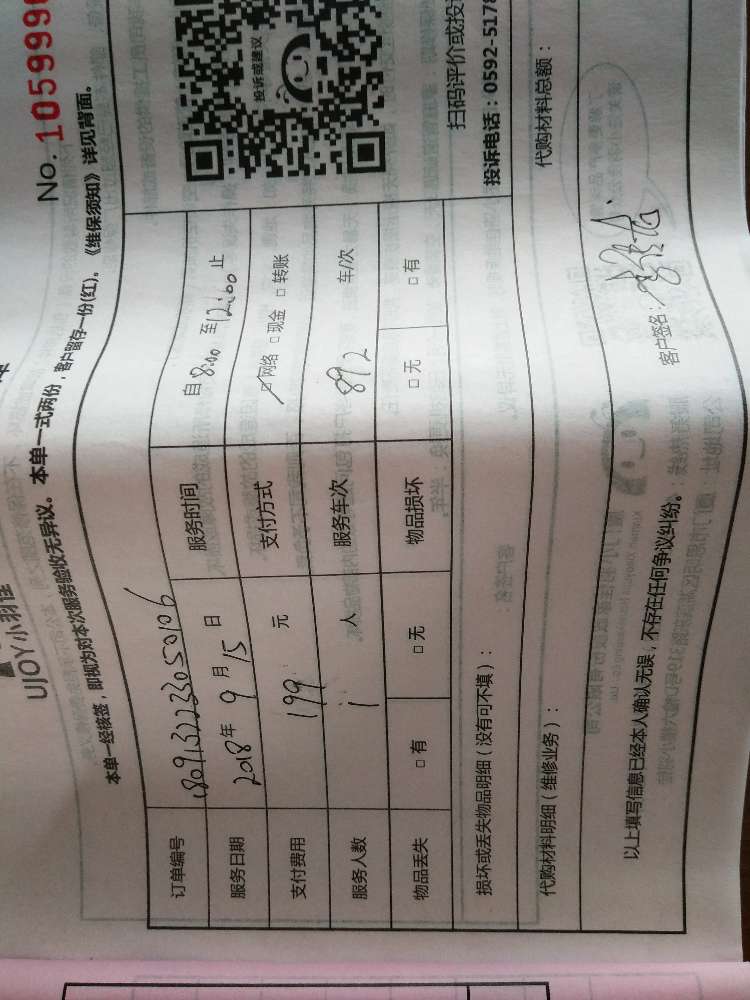 No. 1059996
UJOY小羽佳
本单一经核签，即视为对本次服务验收无异议。本单一式两份，客户留存一份(红)。《维保须知》详见背面。
订单编号 1809132233050106
服务日期 2018年 9 月 15 日 服务时间 自 8:00 至 12:00 止
支付费用 199 元 支付方式 □网络 □现金 □转账
服务人数 1 人 服务车次 892 车/次
物品丢失 □有 □无 物品损坏 □无 □有
投诉或建议
扫码评价或投
投诉电话：0592-5178
损坏或丢失物品明细（没有可不填）：
代购材料明细（维修业务）： 代购材料总额：
以上填写信息已经本人确认无误，不存在任何争议纠纷。 客户签名：